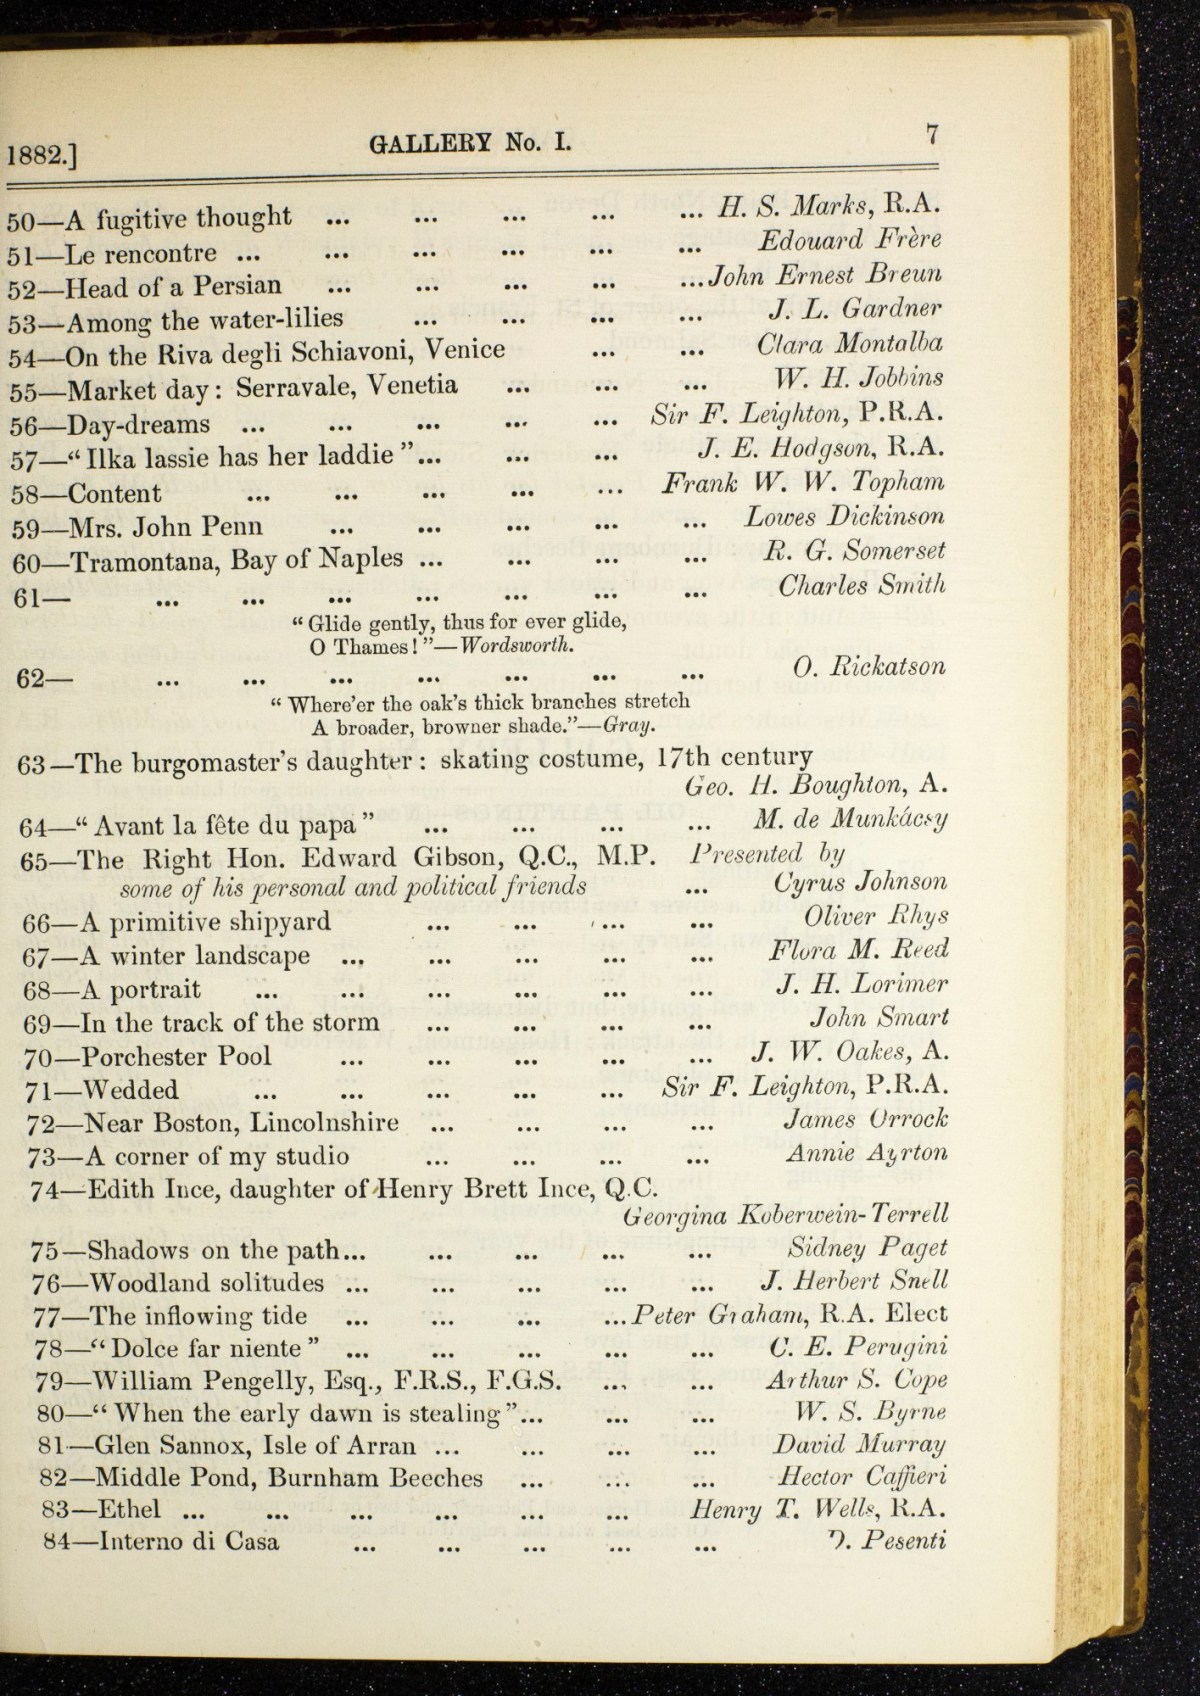 1882.] GALLERY No. I. 7
50—A fugitive thought ... ... ... ... ... H. S. Marks, R.A.
51—Le rencontre ... ... ... ... ... ... Edouard Frère
52—Head of a Persian ... ... ... ... ... John Ernest Breun
53—Among the water-lilies ... ... ... ... J. L. Gardner
54—On the Riva degli Schiavoni, Venice ... ... Clara Montalba
55—Market day: Serravale, Venetia ... ... ... W. H. Jobbins
56—Day-dreams ... ... ... ... ... Sir F. Leighton, P.R.A.
57—“Ilka lassie has her laddie”... ... ... J. E. Hodgson, R.A.
58—Content ... ... ... ... ... Frank W. W. Topham
59—Mrs. John Penn ... ... ... ... ... Lowes Dickinson
60—Tramontana, Bay of Naples ... ... ... ... R. G. Somerset
61— ... ... ... ... ... ... ... Charles Smith
“Glide gently, thus for ever glide,
O Thames!”—Wordsworth.
62— ... ... ... ... ... ... ... O. Rickatson
“Where'er the oak's thick branches stretch
A broader, browner shade.”—Gray.
63—The burgomaster's daughter: skating costume, 17th century
Geo. H. Boughton, A.
64—“Avant la fête du papa” ... ... ... ... M. de Munkácsy
65—The Right Hon. Edward Gibson, Q.C., M.P. Presented by
some of his personal and political friends ... Cyrus Johnson
66—A primitive shipyard ... ... ... ... Oliver Rhys
67—A winter landscape ... ... ... ... ... Flora M. Reed
68—A portrait ... ... ... ... ... ... J. H. Lorimer
69—In the track of the storm ... ... ... ... John Smart
70—Porchester Pool ... ... ... ... ... J. W. Oakes, A.
71—Wedded ... ... ... ... ... Sir F. Leighton, P.R.A.
72—Near Boston, Lincolnshire ... ... ... ... James Orrock
73—A corner of my studio ... ... ... ... Annie Ayrton
74—Edith Ince, daughter of Henry Brett Ince, Q.C.
Georgina Koberwein-Terrell
75—Shadows on the path... ... ... ... ... Sidney Paget
76—Woodland solitudes ... ... ... ... ... J. Herbert Snell
77—The inflowing tide ... ... ... ... Peter Graham, R.A. Elect
78—“Dolce far niente” ... ... ... ... ... C. E. Perugini
79—William Pengelly, Esq., F.R.S., F.G.S. ... ... Arthur S. Cope
80—“When the early dawn is stealing”... ... ... W. S. Byrne
81—Glen Sannox, Isle of Arran ... ... ... ... David Murray
82—Middle Pond, Burnham Beeches ... ... ... Hector Caffieri
83—Ethel ... ... ... ... ... ... Henry T. Wells, R.A.
84—Interno di Casa ... ... ... ... ... Pesenti